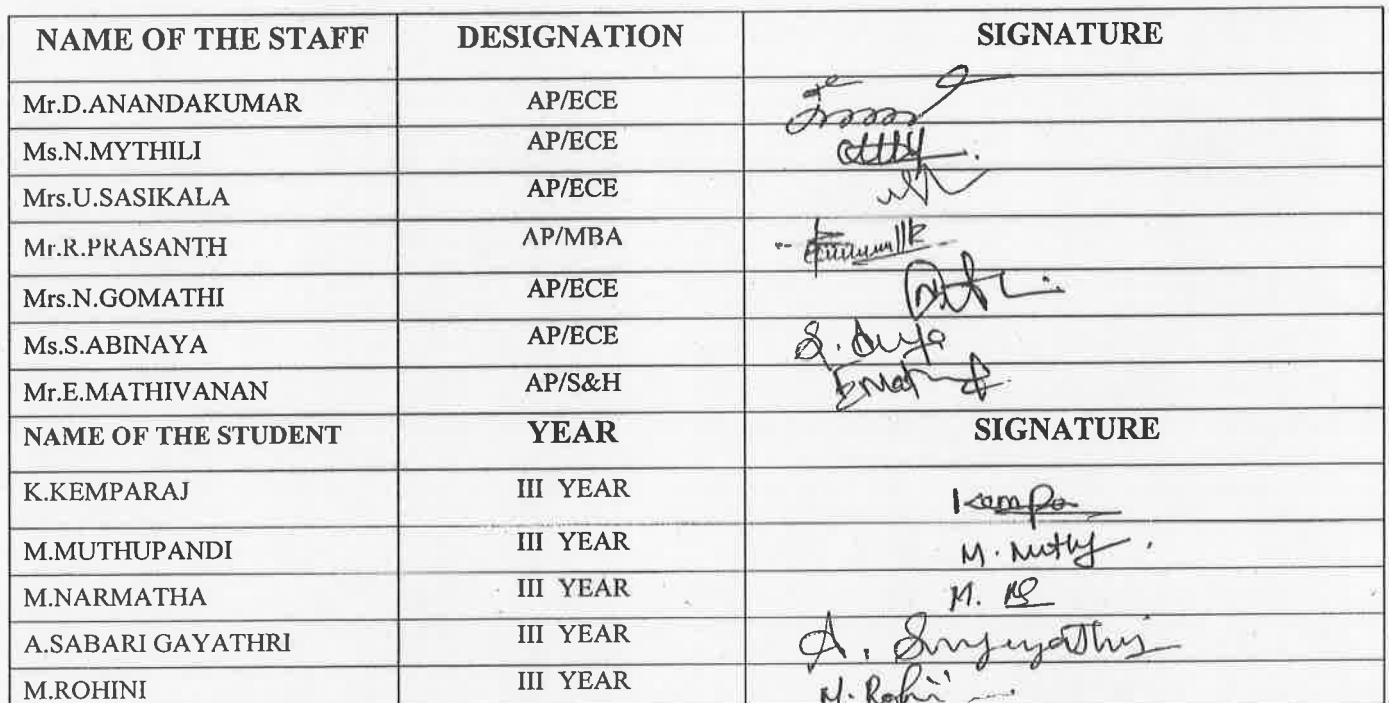 NAME OF THE STAFF DESIGNATION SIGNATURE
Mr.D.ANANDAKUMAR AP/ECE
Ms.N.MYTHILI AP/ECE
Mrs.U.SASIKALA AP/ECE
Mr.R.PRASANTH AP/MBA
Mrs.N.GOMATHI AP/ECE
Ms.S.ABINAYA AP/ECE S.
Mr.E.MATHIVANAN AP/S&H
NAME OF THE STUDENT YEAR SIGNATURE
K.KEMPARAJ III YEAR Kempa
M.MUTHUPANDI III YEAR M.
M.NARMATHA III YEAR M.
A.SABARI GAYATHRI III YEAR A.
M.ROHINI III YEAR M.